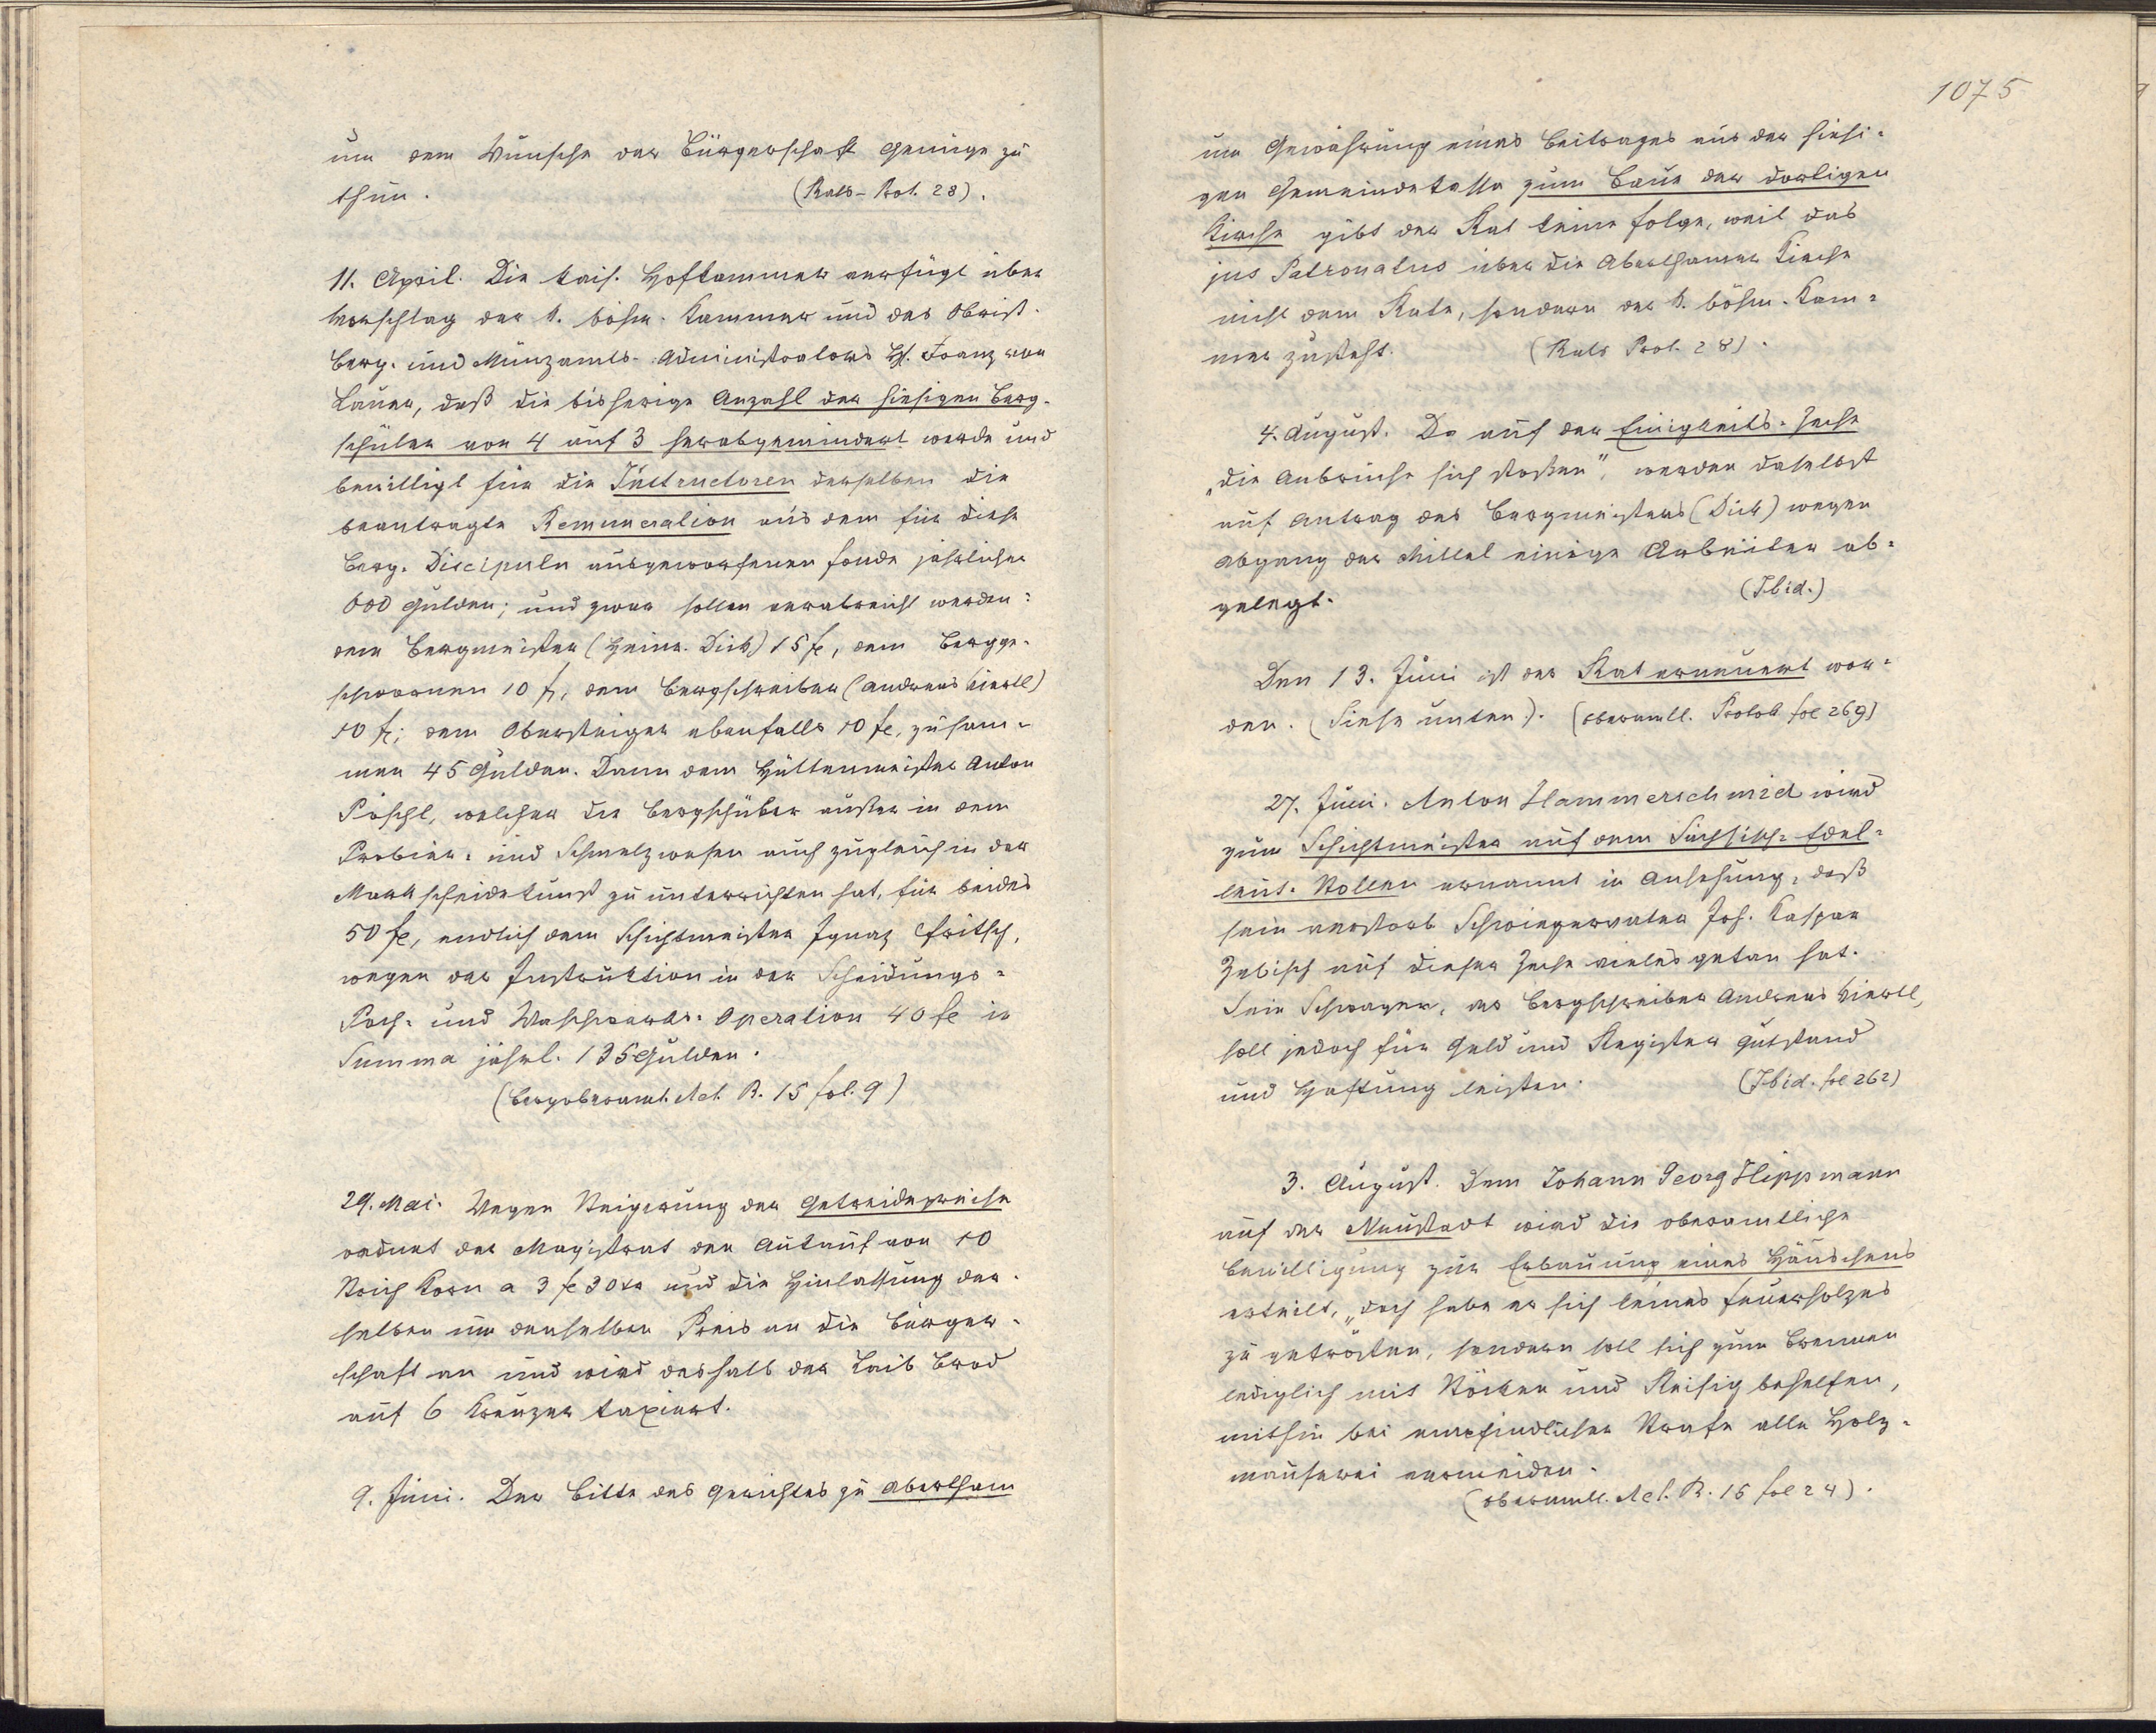 um dem Wunsche der Bürgerschaft Genüge zu
thun. (Rats-Prot. 28).
11. April. Die kais. Hofkammer verfügt über
Vorschlag der k. böhm. Kammer und des Obrist-
Berg- und Münzamts-Administrators H. Franz von
Lauer, daß die bisherige Anzahl der hiesigen Berg-
schüler von 4 auf 3 herabgemindert werde und
bewilligt für die Instructoren derselben die
beantragte Remuneration aus dem für diese
Berg-Discipuln ausgeworfenen Fonde jährlicher
600 Gulden; und zwar sollen verabreicht werden:
dem Bergmeister (Heinr. Dick) 15 fl, dem Bergge-
schwornen 10 fl, dem Bergschreiber (Andreas Kiertl)
10 fl; dem Obersteiger ebenfalls 10 fl, zusam-
men 45 Gulden. Dann dem Hüttenmeister Anton
Pöschl, welcher die Bergschüler außer in dem
Probier- und Schmelzwesen auch zugleich in der
Markscheidekunst zu unterrichten hat, für beides
50 fl, endlich dem Schichtmeister Ignaz Fritsch,
wegen der Instruktion in der Scheidungs-
Poch- und Waschwerks-Operation 40 fl in
Summa jährl. 135 Gulden.
(Bergoberamt. Act. R. 15 fol. 9)
29. Mai. Wegen Steigerung der Getreidepreise
ordnet der Magistrat den Ankauf von 10
Strich Korn a 3 fl 30 xr und die Hinlassung der-
selben um denselben Preis an die Bürger-
schaft an und wird deshalb der Laib Brod
auf 6 Kreuzer taxiert.
9. Juni. Der Bitte des Gerichtes zu Abertham
1075
um Gewährung eines Beitrages aus der hiesi-
gen Gemeindekassa zum Baue der dortigen
Kirche gibt der Rat keine Folge, weil das
jus Patronatus über die Aberthamer Kirche
nicht dem Rate, sondern der k. böhm. Kam-
mer zusteht. (Rats Prot. 28).
4. August. Da auf der Einigkeits-Zeche
„die Anbrüche sich stoßen", werden daselbst
auf Antrag des Bergmeisters (Dick) wegen
Abgang der Mittel einige Arbeiter ab-
gelegt. (Ibid.)
Den 13. Juni ist der Rat erneuert wor-
den. (Siehe unten). (oberamtl. Protok fol 269)
27. Juni. Anton Hammerschmid wird
zum Schichtmeister auf dem Sächsisch-Edel-
leut-Stollen ernannt in Ansehung, daß
sein verstorb Schwiegervater Joh. Kaspar
Zebisch auf dieser Zeche vieles getan hat.
Sein Schwager, der Bergschreiber Andreas Kiertl,
soll jedoch für Geld und Register Gutstand
und Haftung leisten. (Ibid. fol 262)
3. August. Dem Johann Georg Hippmann
auf der Neustadt wird die oberamtliche
Bewilligung zur Erbauung eines Häuschens
erteilt, „doch habe er sich keines Feuerholzes
zu getrösten, sondern soll sich zum Brennen
lediglich mit Stöcken und Reisig behelfen,
mithin bei empfindlicher Strafe alle Holz-
mauserei vermeiden.
(oberamtl. Act. R. 15 fol 24).